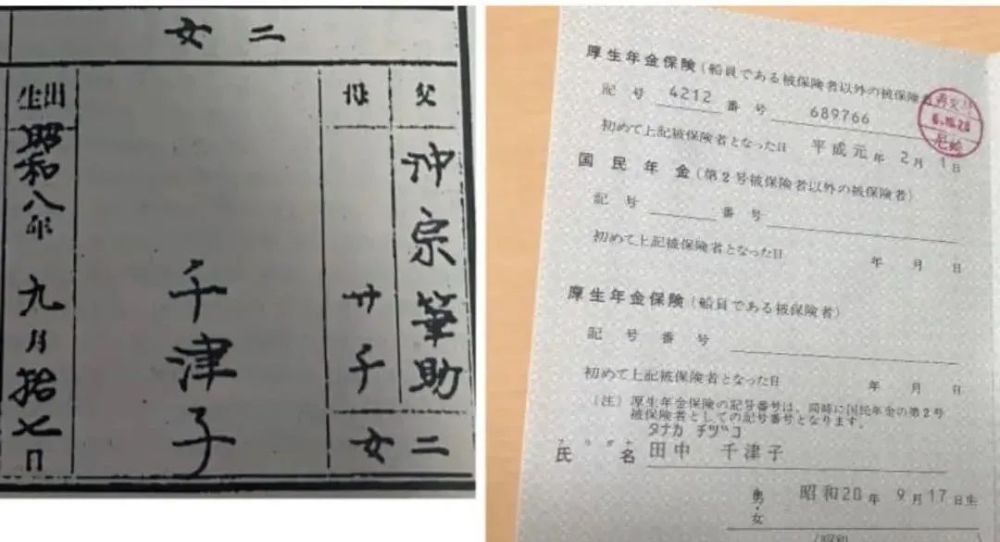 二女
父 沖宗筆助
母 サチ
二女
千津子
出生 昭和八年九月拾七日
厚生年金保険(船員である被保険者以外の被保険者
記号 4212 番号 689766
再交付
尼崎
初めて上記被保険者となった日 平成元年2月1日
国民年金(第2号被保険者以外の被保険者)
記号 番号
初めて上記被保険者となった日 年 月 日
厚生年金保険(船員である被保険者)
記号番号
初めて上記被保険者となった日 年 月 日
(注) 厚生年金保険の記号番号は、同時に国民年金の第2号
被保険者としての記号番号となります。
タナカ チヅコ
フリガナ
氏名 田中 千津子
男・女 昭和20年 9月17日生